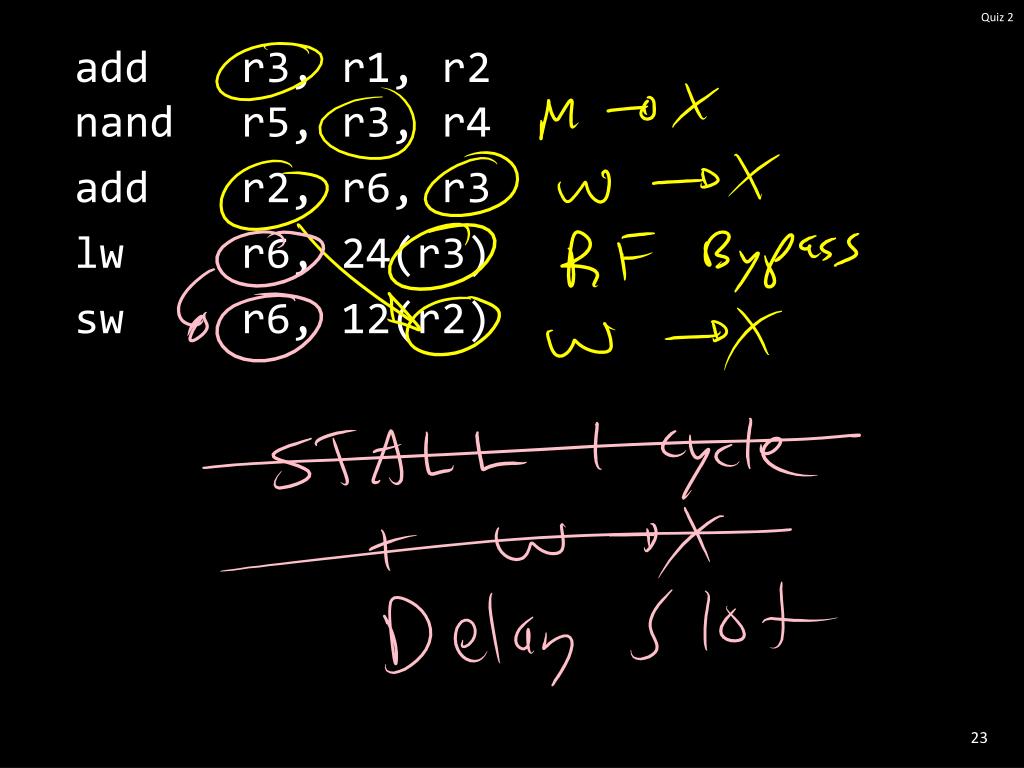 Quiz 2
add r3, r1, r2
nand r5, r3, r4 M → X
add r2, r6, r3 W → X
lw r6, 24(r3) RF Bypass
sw r6, 12(r2) W → X
STALL 1 cycle
+ W → X
Delay Slot
23